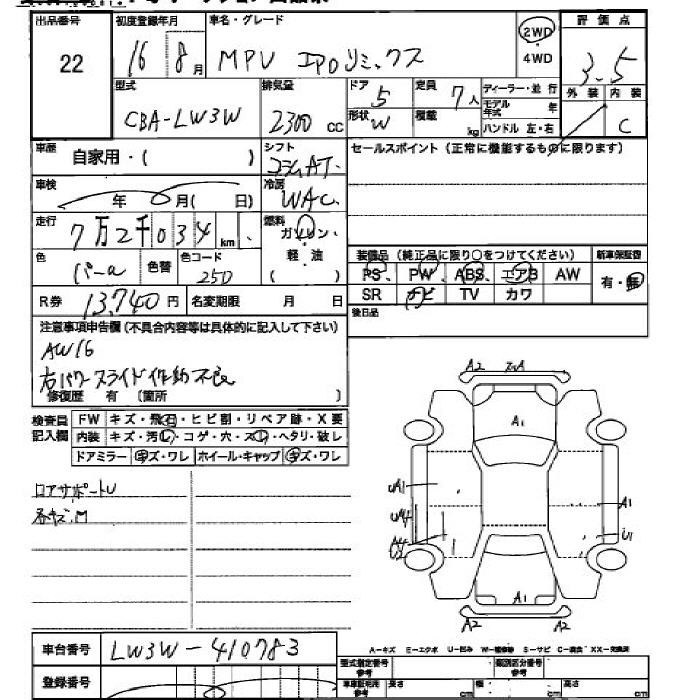 出品番号 初度登録年月 車名・グレード 2WD 評価点
22 16 8月 MPV エアロリミックス 4WD 3.5
型式 排気量 ドア 定員 ディーラー・並行 外装 内装
CBA-LW3W 2300cc 5 7人 モデル年式 年 C
形状 W 積載 kg ハンドル 左・右
車歴 自家用・( ) シフト コラムAT セールスポイント(正常に機能するものに限ります)
車検 年 月( 日) 冷房 WAC
走行 7万2千034km 燃料 ガソリン・軽油 ( )
装備品(純正品に限り○をつけてください) 新車保証書
色 パール 色替 色コード 25D PS PW ABS エアB AW 有・無
R券 13,740円 名変期限 月 日 SR ナビ TV カワ
注意事項申告欄(不具合内容等は具体的に記入して下さい) 後日品
AW16
右パワースライド作動不良
修復歴 有 〔箇所 〕
検査員記入欄 FW キズ・飛石・ヒビ割・リペア跡・X要
内装 キズ・汚し・コゲ・穴・スレ・ヘタリ・破レ
ドアミラー キズ・ワレ ホイール・キャップ キズ・ワレ
A2
A1
ロアサポートU
各キズ凹
A1 A1
U1
A1
A2 A2
車台番号 LW3W-410783
A-キズ E-エクボ U-凹み W-補修跡 S-サビ C-腐食 XX-交換済
登録番号 型式指定番号 参考 類別区分番号 参考
車車証記用 参考 長さ cm 幅 cm 高さ cm